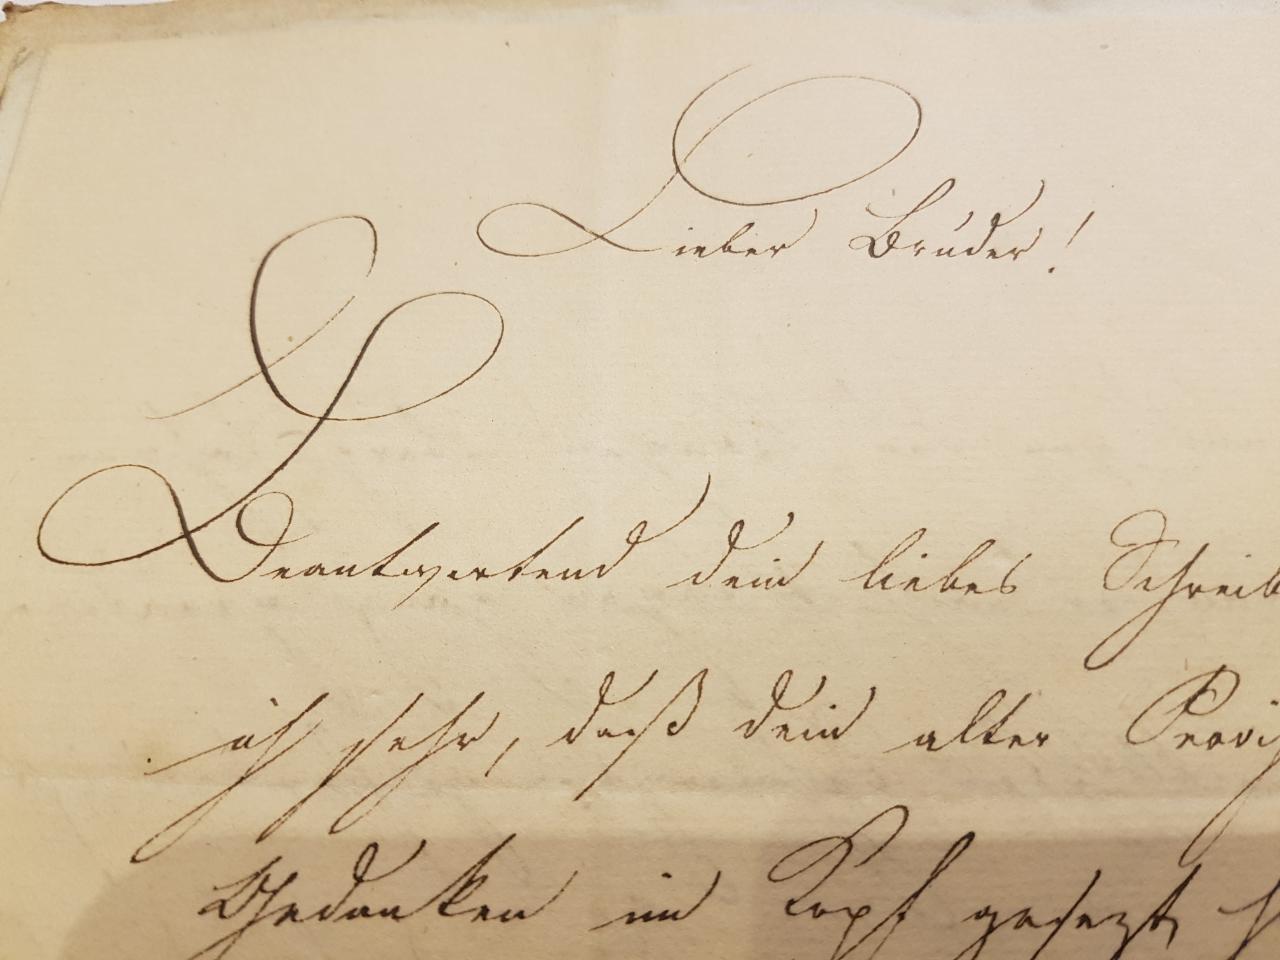 Lieber Bruder!
Beantwortend dein liebes Schreib
ich sehr, daß dein alter
Gedanken im Kopf gesezt h